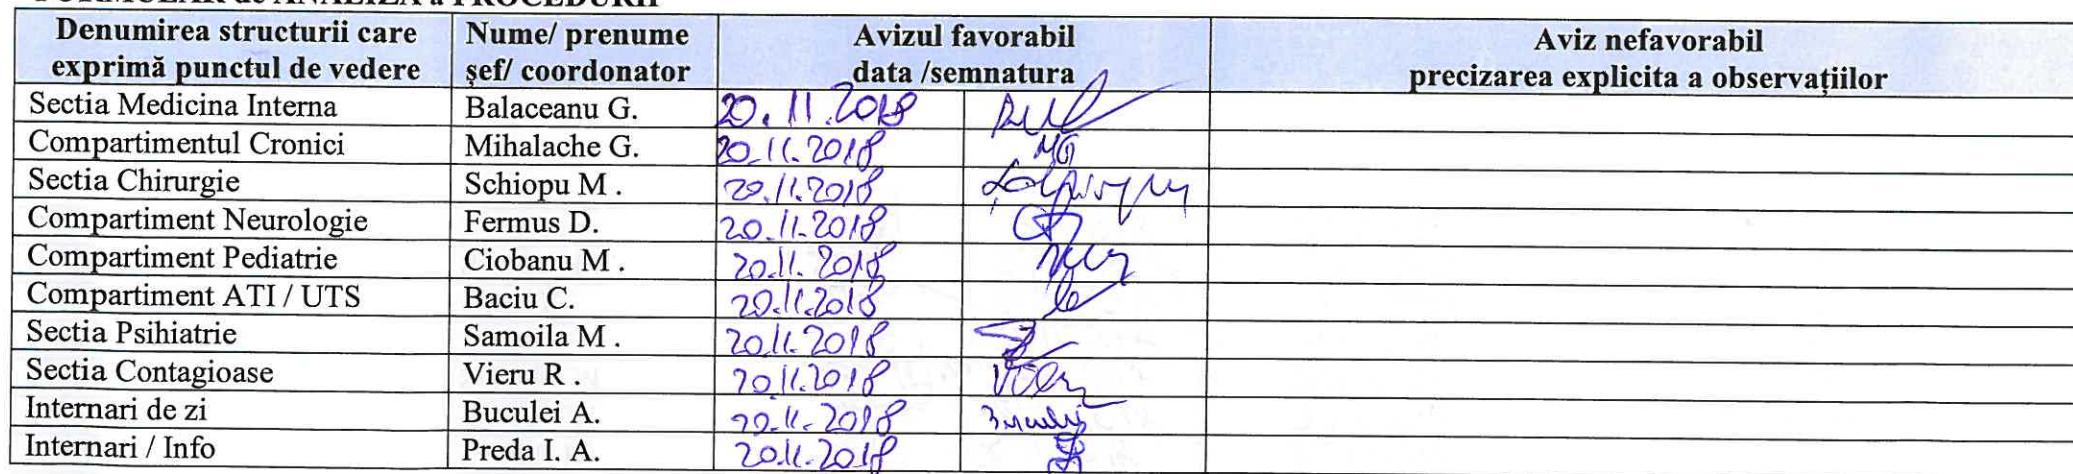 FORMULAR de ANALIZA a PROCEDURII
Denumirea structurii care exprimă punctul de vedere Nume/ prenume șef/ coordonator Avizul favorabil data /semnatura Aviz nefavorabil precizarea explicita a observațiilor
Sectia Medicina Interna Balaceanu G. 20.11.2018
Compartimentul Cronici Mihalache G. 20.11.2018
Sectia Chirurgie Schiopu M . 20.11.2018
Compartiment Neurologie Fermus D. 20.11.2018
Compartiment Pediatrie Ciobanu M . 20.11.2018
Compartiment ATI / UTS Baciu C. 20.11.2018
Sectia Psihiatrie Samoila M . 20.11.2018
Sectia Contagioase Vieru R . 20.11.2018
Internari de zi Buculei A. 20.11.2018
Internari / Info Preda I. A. 20.11.2018